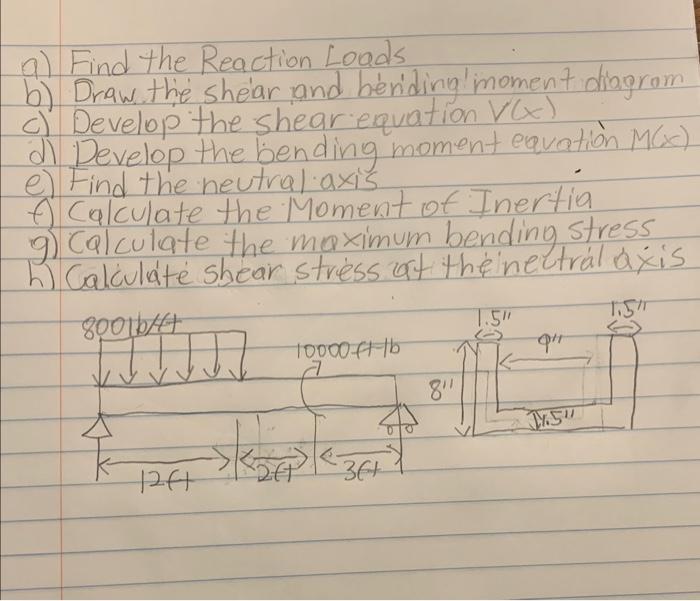 a) Find the Reaction Loads
b) Draw the shear and bending moment diagram
c) Develop the shear equation V(x)
d) Develop the bending moment equation M(x)
e) Find the neutral axis
f) Calculate the Moment of Inertia
g) Calculate the maximum bending stress
h) Calculate shear stress at the neutral axis
800lb/ft
10000 ft-lb
1.5"
1.5"
9"
8"
1.5"
12ft
2ft
3ft